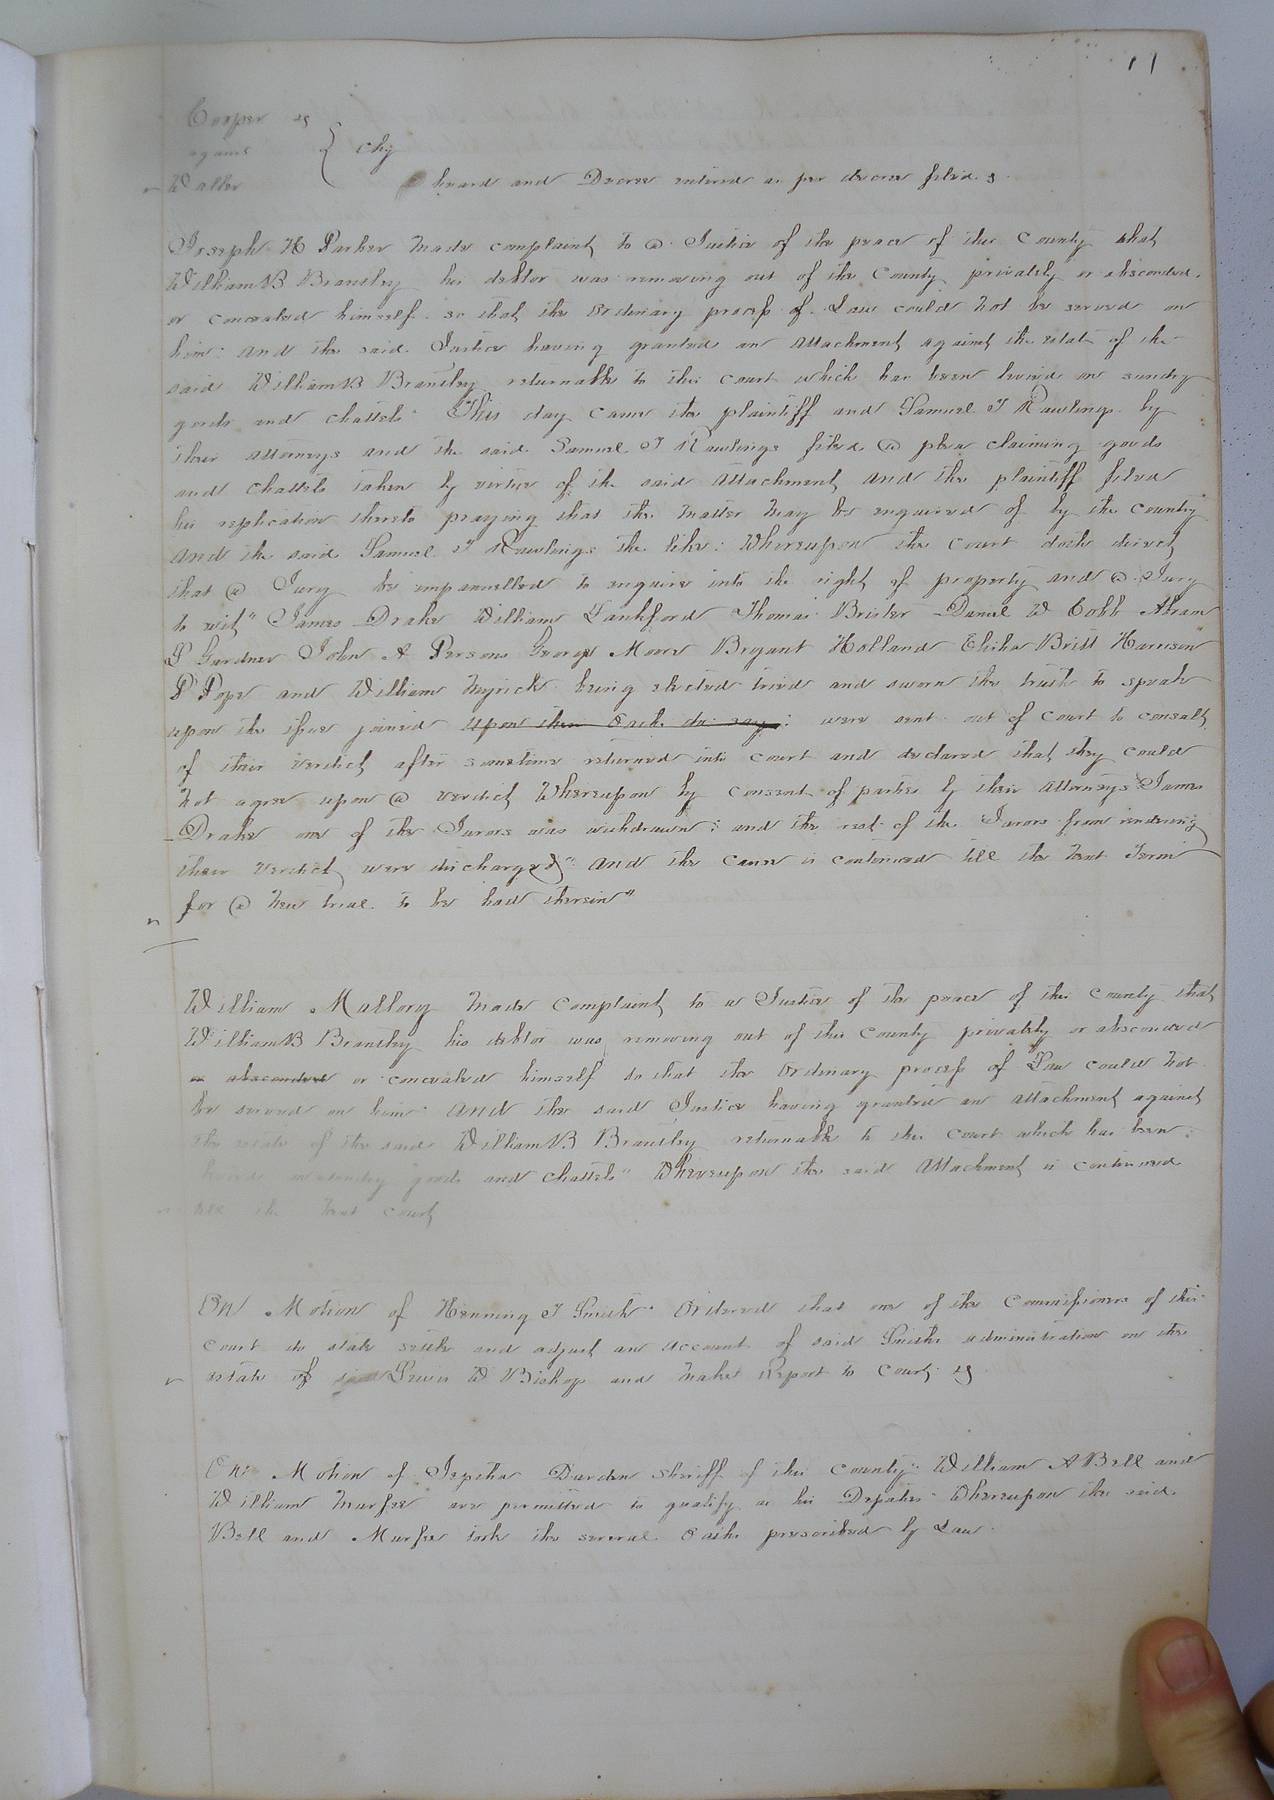 11
Cooper
agains } chy
Waller
heard and Decree entered as per decree filed.
Joseph H Parker made complaint to a Justice of the peace of this County that
William B Brantley his debtor was removing out of the County privately or absconded
or concealed himself so that the Ordinary process of Law could not be served on
him: And the said Justice having granted an Attachment against the estate of the
said William B Brantley returnable to this court which has been levied on sundry
goods and chattels" This day came the plaintiff and Samuel T Rawlings by
their attorneys and the said Samuel T Rawlings filed a plea claiming goods
and chattels taken by virtue of the said Attachment And the plaintiff filed
his replication thereto praying that the matter may be enquired of by the country
And the said Samuel T Rawlings the like: Whereupon the court doth direct
that a Jury be empannelled to enquire into the right of property and a Jury
to wit" James Drake William Lankford Thomas Brister Daniel W Cobb Abram
S Gardner John A Persons George Moore Bryant Holland Elisha Britt Harrison
P Pope and William Myrick being elected tried and sworn the truth to speak
upon the issue joined upon their Oaths do say: were sent out of court to consult
of their verdict after sometime returned into court and declared that they could
not agree upon a verdict Whereupon by consent of parties by their Attorneys James
Drake one of the Jurors was withdrawn: and the rest of the Jurors from rendering
their verdict were discharged" And the cause is continued till the next Term
for a new trial to be had therein"
William Mallory made complaint to a Justice of the peace of this County that
William B Brantley his debtor was removing out of this County privately or absconded
or absconded or concealed himself so that the Ordinary process of Law could not
be served on him: And the said Justice having granted an Attachment against
the estate of the said William B Brantley returnable to this court which has been
levied on sundry goods and chattels" Whereupon the said Attachment is continued
till the next court
On Motion of Henning T Smith" Ordered that one of the Commissioners of this
court do state settle and adjust an account of said Smiths administration on the
estate of Lewis W Bishop and make Report to Court
On Motion of Jeptha Darden Sheriff of this County" William A Bell and
William Murfee are permitted to qualify as his Depaties Whereupon the said
Bell and Murfee took the several Oaths prescribed by Law.